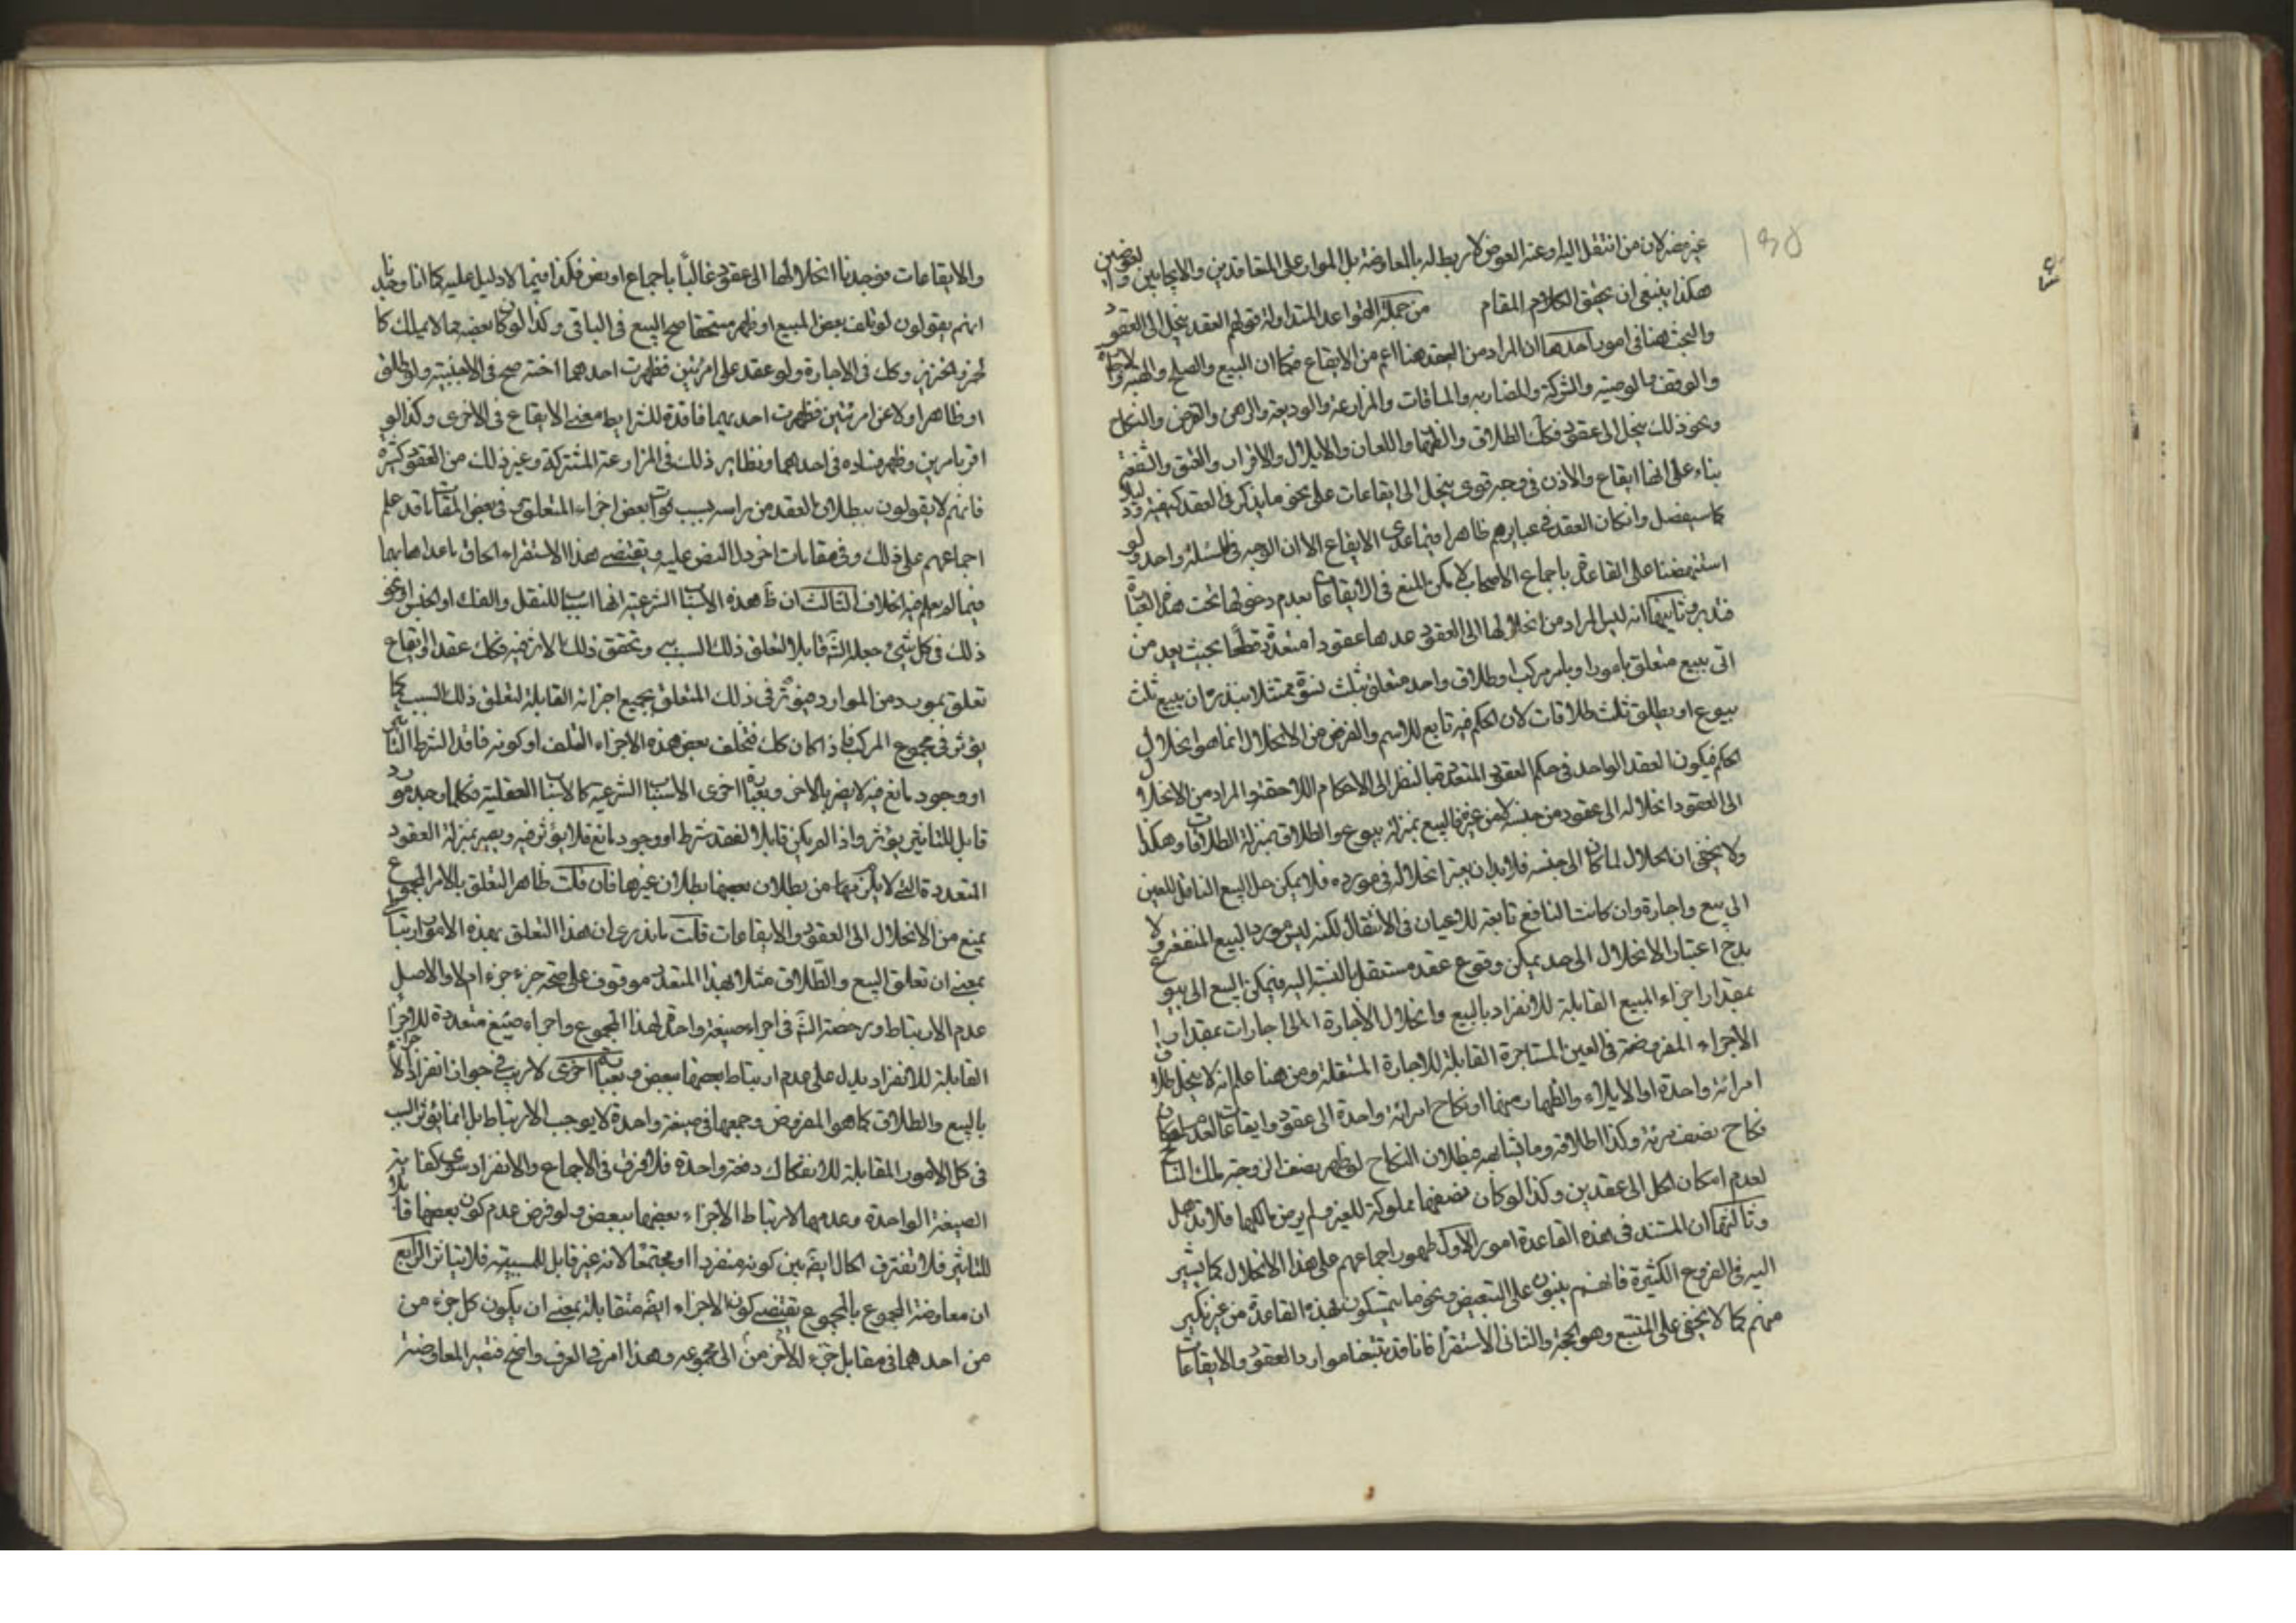 غير مضر لان من انتقل اليه او عنه العوض لا ربط له بالمعاوضة بل المدار على المتعاقدين والايجابين والعوضين
هكذا ينبغي ان يحقق الكلام المقام من جملة القواعد المتداولة قولهم العقد ينحل الى العقود
والبحث هنا في امور احدها ان المراد من العقد هنا اعم من الايقاع فكما ان البيع والصلح والهبة والاجارة
والوقف والوصية والشركة والمضاربة والمساقات والمزارعة والوديعة والرهن والقرض والنكاح
ونحو ذلك ينحل الى عقود فكك الطلاق والظهار واللعان والايلاء والاقرار والعتق والشفعة
بناء على انها ايقاع والاذن في وجه قوي ينحل الى ايقاعات على نحو ما يذكر في العقد كيفية ودليلا
كما سيفصل وان كان العقد في عبايرهم ظاهرا فيما عدى الايقاع الا ان الوجه في المسئلة واحد ولو
استنهضنا على القاعدة باجماع الاصحاب لا يمكن المنع في الايقاعات بعدم دخولها تحت هذه العبارة
فتدبر وثانيها انه ليس المراد من انحلالها الى العقود عدها عقودا متعددة قطعا بحيث يعد من
اتى ببيع متعلق بامور او بامر مركب او طلاق واحد متعلق بثلث نسوة ممتثلا لنذره ان يبيع ثلث
بيوع او يطلق ثلث طلاقات لان الحكم فيه تابع للاسم والغرض من الانحلال انما هو انحلال
الحكم فيكون العقد الواحد في حكم العقود المتعددة بالنظر الى الاحكام اللاحقة والمراد من الانحلال
الى العقود انحلاله الى عقود من جنسه لا من غيره فالبيع بمنزلة بيوع والطلاق بمنزلة الطلاقات وهكذا
ولا يخفى ان انحلال لما كان الى جنسه فلا بد ان يعتبر انحلاله في مورده فلا يمكن حل البيع الناقل للعين
الى بيع واجارة وان كانت المنافع تابعة للاعيان في الانتقال لكنه ليس مورد البيع المنفعة ولا
بد ح اعتبار الانحلال الى حد يمكن وقوع عقد مستقل بالنسبة اليه فيمكن البيع الى بيوع
بمقدار اجزاء المبيع القابلة للانفراد بالبيع وانحلال الاجارة الى اجارات بمقدار
الاجزاء المفروضة في العين المستاجرة القابلة للاجارة المستقلة ومن هنا علم انه لا ينحل طلاق
امرائة واحدة او الايلاء والظهار منها او نكاح امرائة واحدة الى عقود وايقاعات لعدم امكان
نكاح نصف مرئة وكذا طلاقه وما يشابهه فبطلان النكاح لو ظهر نصف الزوجة لملك الناكح
لعدم امكان الحل الى عقدين وكذا لو كان نصفها مملوكة للغير ولم يرض مالكها فلا بد
وثالثها ان المستند في هذه القاعدة امور الاول ظهور اجماعهم على هذا الانحلال كما يشير
اليه في الفروع الكثيرة فانهم يبنون على التبعيض ونحو ما يتمسكون بهذه القاعدة من غير نكير
منهم كما لا يخفى على المتتبع وهو الحجة والثاني الاستقراء فانا قد تتبعنا موارد العقود والايقاعات
والايقاعات فوجدنا انحلالها الى عقود غالبا باجماع او نص فكذا فيما لا دليل عليه كما انا وجدنا
انهم يقولون لو تلف بعض المبيع او ظهر مستحقا صح البيع في الباقي وكذا لو كان بعضه مما لا يملك كا
لخمر والخنزير وكك في الاجارة ولو عقد على امرئتين فظهرت احدهما اخته صح في الاجنبية ولو طلق
او ظاهر او لاعن امرئتين فظهرت احديهما فاقدة للشرايط مضى الايقاع في الاخرى وكذا لو
اقر بامرين وظهر فساده في احدهما ونظاير ذلك في المزارعة المشتركة وغير ذلك من العقود كثيرة
فانهم لا يقولون ببطلان العقد من راسه بسبب فوات بعض اجزاء المتعلق وفي بعض المقامات قد علم
اجماعهم على ذلك وفي مقامات اخر دل النص عليه ويقتضي هذا الاستقراء الحاق ما عداها بها
فيما لم يعلم فيه الخلاف الثالث ان ظ هذه الاسباب الشرعية انها اسباب للنقل والفك او الحبس او نحو
ذلك في كل شيء جعله الش قابلا لتعلق ذلك السبب وتحقق ذلك الاثر فيه فكك عقد او ايقاع
تعلق بمورد من الموارد فيؤثر في ذلك المتعلق بجميع اجزائه القابلة لتعلق ذلك السبب كما
يؤثر في مجموع المركب فاذا كان كك فتخلف بعض هذه الاجزاء لتلف او كونه فاقد الشرط التاثير
او وجود مانع فيه لا يضر بالاخر وبعبارة اخرى الاسباب الشرعية كالاسباب العقلية فكلما وجد مورد
قابل للتاثير يؤثر واذا لم يكن قابلا لفقد شرط او وجود مانع فلا يؤثر فيه ويصير بمنزلة العقود
المتعددة التي لا يلزم من بطلان بعضها بطلان غيرها فان قلت ظاهر التعلق بالامر المجموع
يمنع من الانحلال الى العقود والايقاعات قلت ما ندري ان هذا التعلق بهذه الامور ارتباطي
بمعنى ان تعلق البيع والطلاق مثلا بهذا المتعدد موقوف على صحة جزء جزء ام لا والاصل
عدم الارتباط ورخصة الش في اجراء صيغة واحدة لهذا المجموع واجراء صيغ متعددة للاجزاء
القابلة للانفراد يدل على عدم ارتباط بعضها ببعض وبعبارة اخرى لا ريب في جواز انفراد الاجزاء
بالبيع والطلاق كما هو المفروض وجمعها في صيغة واحدة لا يوجب الارتباط بل انما يؤثر السبب
في كل الامور القابلة للانفكاك دفعة واحدة فلا فرق في الاجماع والانفراد سوى كفاية
الصيغة الواحدة وعدمها لا ارتباط الاجزاء بعضها ببعض ولو فرض عدم كون بعضها قابلا
للتاثير فلا تفترق الحال ايضا بين كونه منفردا او مجتمعا لانه غير قابل للسببية فلا يتاثر الرابع
ان معاوضة المجموع بالمجموع يقتضي كون الاجزاء ايضا متقابلة بمعنى ان يكون كل جزء من
من احدهما في مقابل جزء للاخر من الى مجموعه وهذا امر في العرف واضح فتصير المعاوضة